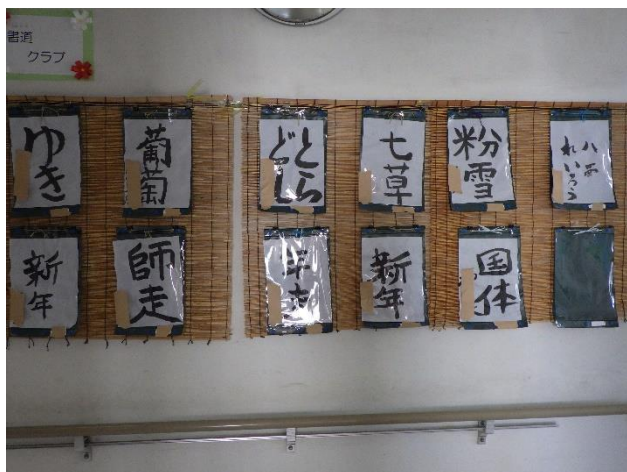 書道
クラブ
ゆき
葡萄
とら
どし
七草
粉雪
新年
師走
新年
国体